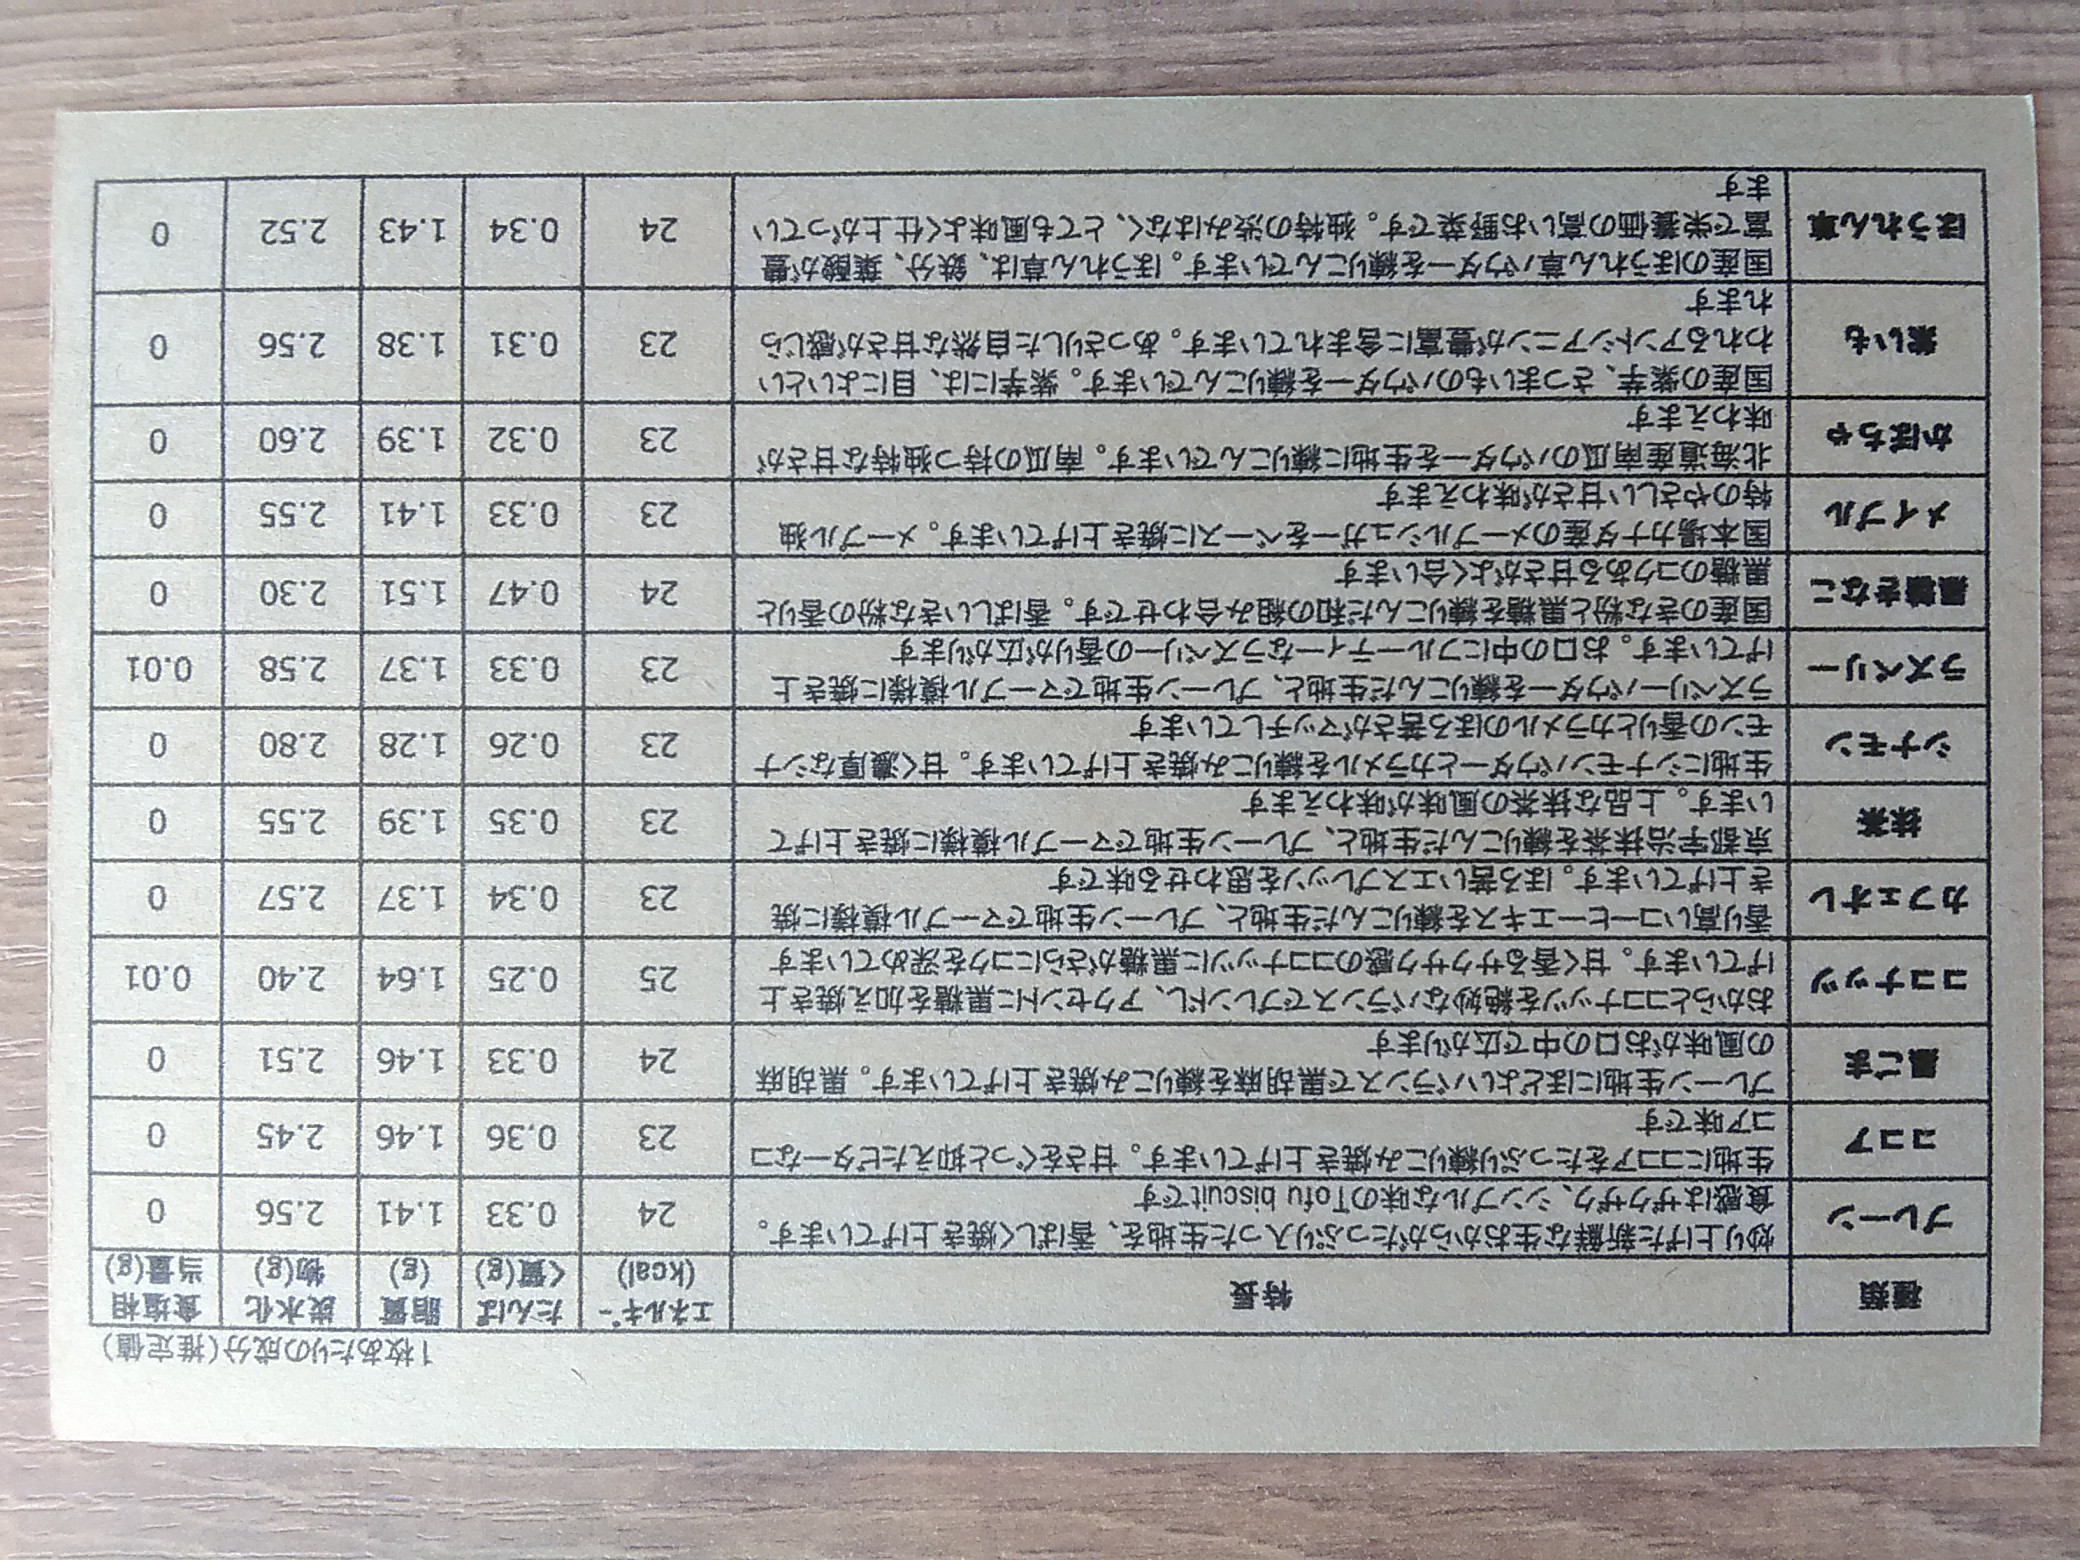 1枚あたりの成分(推定値)
種類 特長 エネルギー (kcal) たんぱく質(g) 脂質 (g) 炭水化物(g) 食塩相当量(g)
プレーン
炒り上げた新鮮な生おからがたっぷり入った生地を、香ばしく焼き上げています。
食感はサクサク、シンプルな味のTofu biscuitです
24 0.33 1.41 2.56 0
ココア
生地にココアをたっぷり練りこみ焼き上げています。甘さをぐっと抑えたビターなコ
コア味です
23 0.36 1.46 2.45 0
黒ごま
プレーン生地にほどよいバランスで黒胡麻を練りこみ焼き上げています。黒胡麻
の風味がお口の中で広がります
24 0.33 1.46 2.51 0
ココナッツ
おからとココナッツを絶妙なバランスでブレンドし、アクセントに黒糖を加え焼き上
げています。甘く香るサクサク感のココナッツに黒糖がさらにコクを深めています
25 0.25 1.64 2.40 0.01
カフェオレ
香り高いコーヒーエキスを練りこんだ生地と、プレーン生地でマーブル模様に焼
き上げています。ほろ苦いエスプレッソを思わせる味です
23 0.34 1.37 2.57 0
抹茶
京都宇治抹茶を練りこんだ生地と、プレーン生地でマーブル模様に焼き上げて
います。上品な抹茶の風味が味わえます
23 0.35 1.39 2.55 0
シナモン
生地にシナモンパウダーとカラメルを練りこみ焼き上げています。甘く濃厚なシナ
モンの香りとカラメルのほろ苦さがマッチしています
23 0.26 1.28 2.80 0
ラズベリー
ラズベリーパウダーを練りこんだ生地と、プレーン生地でマーブル模様に焼き上
げています。お口の中にフルーティーなラズベリーの香りが広がります
23 0.33 1.37 2.58 0.01
黒糖きなこ
国産のきな粉と黒糖を練りこんだ和の組み合わせです。香ばしいきな粉の香りと
黒糖のコクある甘さがよく合います
24 0.47 1.51 2.30 0
メイプル
国本場カナダ産のメープルシュガーをベースに焼き上げています。メープル独
特のやさしい甘さが味わえます
23 0.33 1.41 2.55 0
かぼちゃ
北海道産南瓜のパウダーを生地に練りこんでいます。南瓜の持つ独特な甘さが
味わえます
23 0.32 1.39 2.60 0
紫いも
国産の紫芋、さつまいものパウダーを練りこんでいます。紫芋には、目によいとい
われるアントシアニンが豊富に含まれています。あっさりした自然な甘さが感じら
れます
23 0.31 1.38 2.56 0
ほうれん草
国産のほうれん草パウダーを練りこんでいます。ほうれん草は、鉄分、葉酸が豊
富で栄養価の高いお野菜です。独特の渋みはなく、とても風味よく仕上がってい
ます
24 0.34 1.43 2.52 0